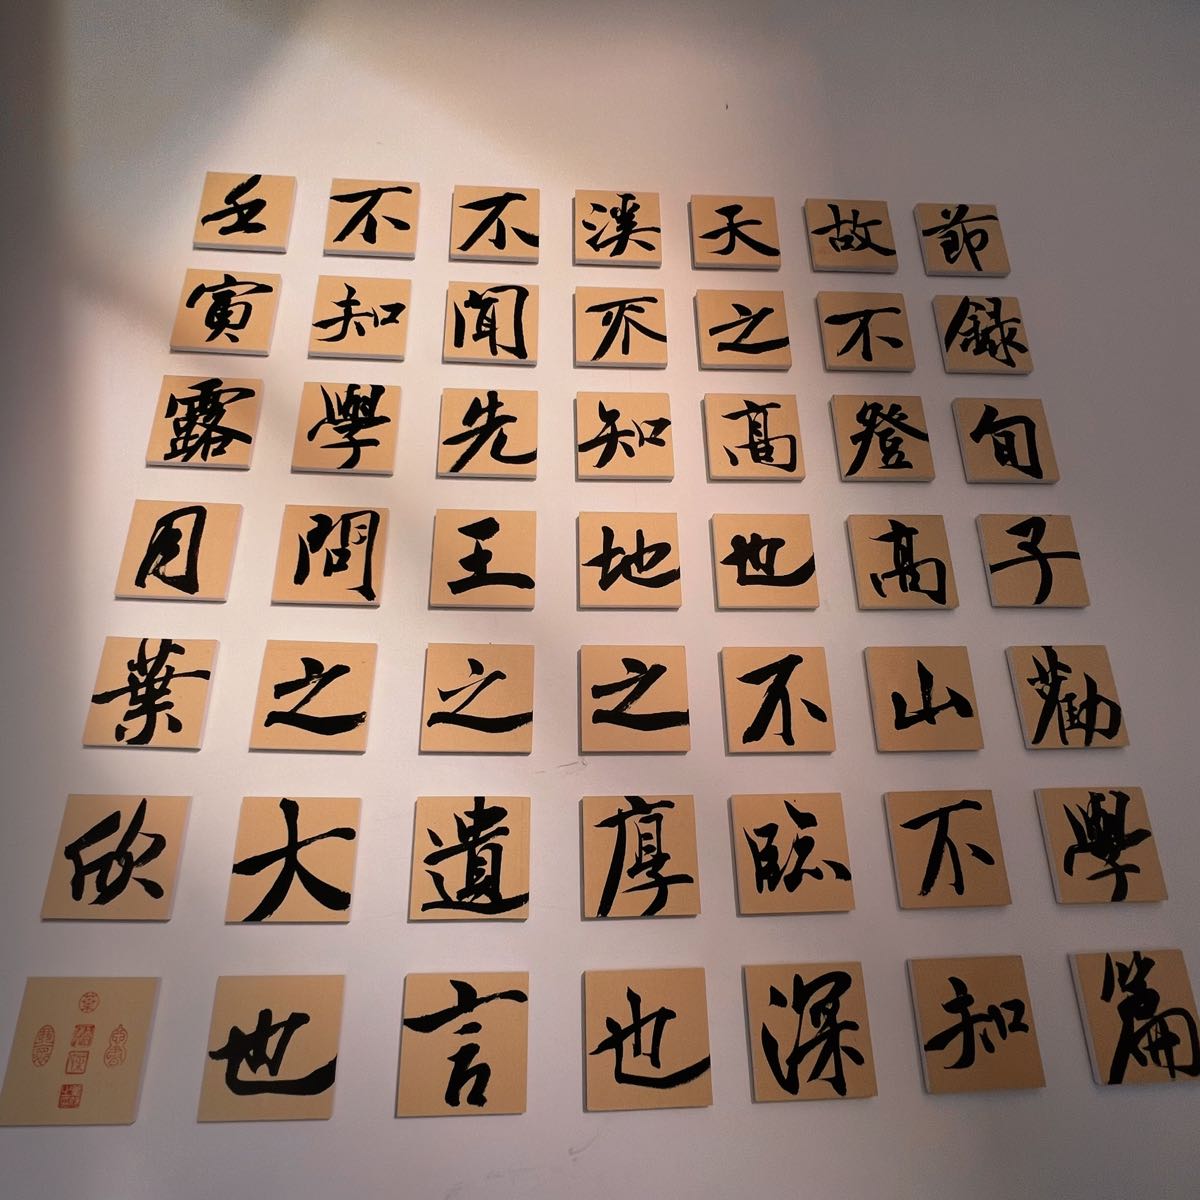 節錄旬子勸學篇
故不登高山不知
天之高也不臨深
溪不知地之厚也
不聞先王之遺言
不知學問之大也
壬寅露月葉欣